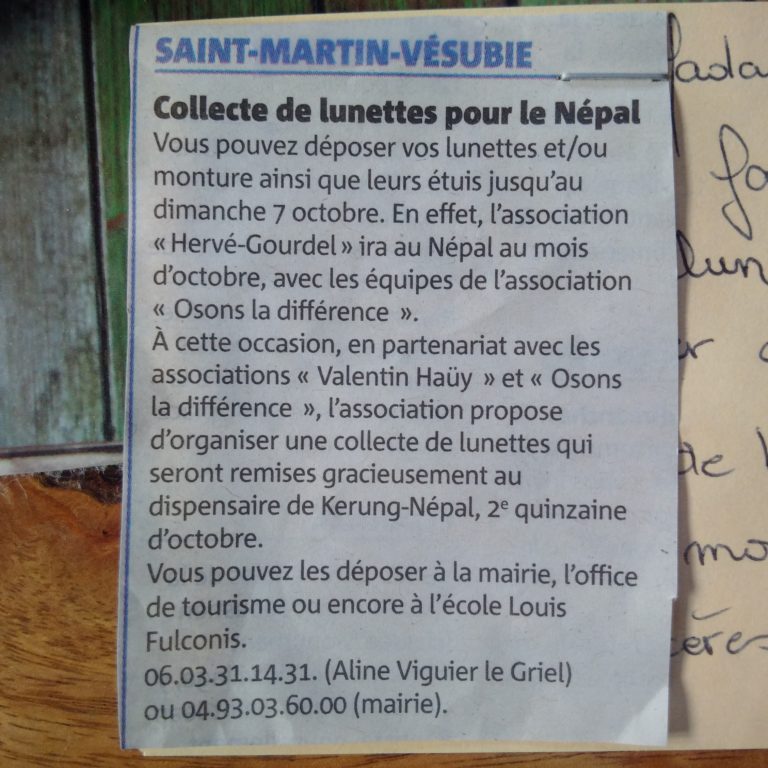 SAINT-MARTIN-VÉSUBIE
Collecte de lunettes pour le Népal
Vous pouvez déposer vos lunettes et/ou
monture ainsi que leurs étuis jusqu'au
dimanche 7 octobre. En effet, l'association
« Hervé-Gourdel » ira au Népal au mois
d'octobre, avec les équipes de l'association
« Osons la différence ».
À cette occasion, en partenariat avec les
associations « Valentin Haüy » et « Osons
la différence », l'association propose
d'organiser une collecte de lunettes qui
seront remises gracieusement au
dispensaire de Kerung-Népal, 2e quinzaine
d'octobre.
Vous pouvez les déposer à la mairie, l'office
de tourisme ou encore à l'école Louis
Fulconis.
06.03.31.14.31. (Aline Viguier le Griel)
ou 04.93.03.60.00 (mairie).
de